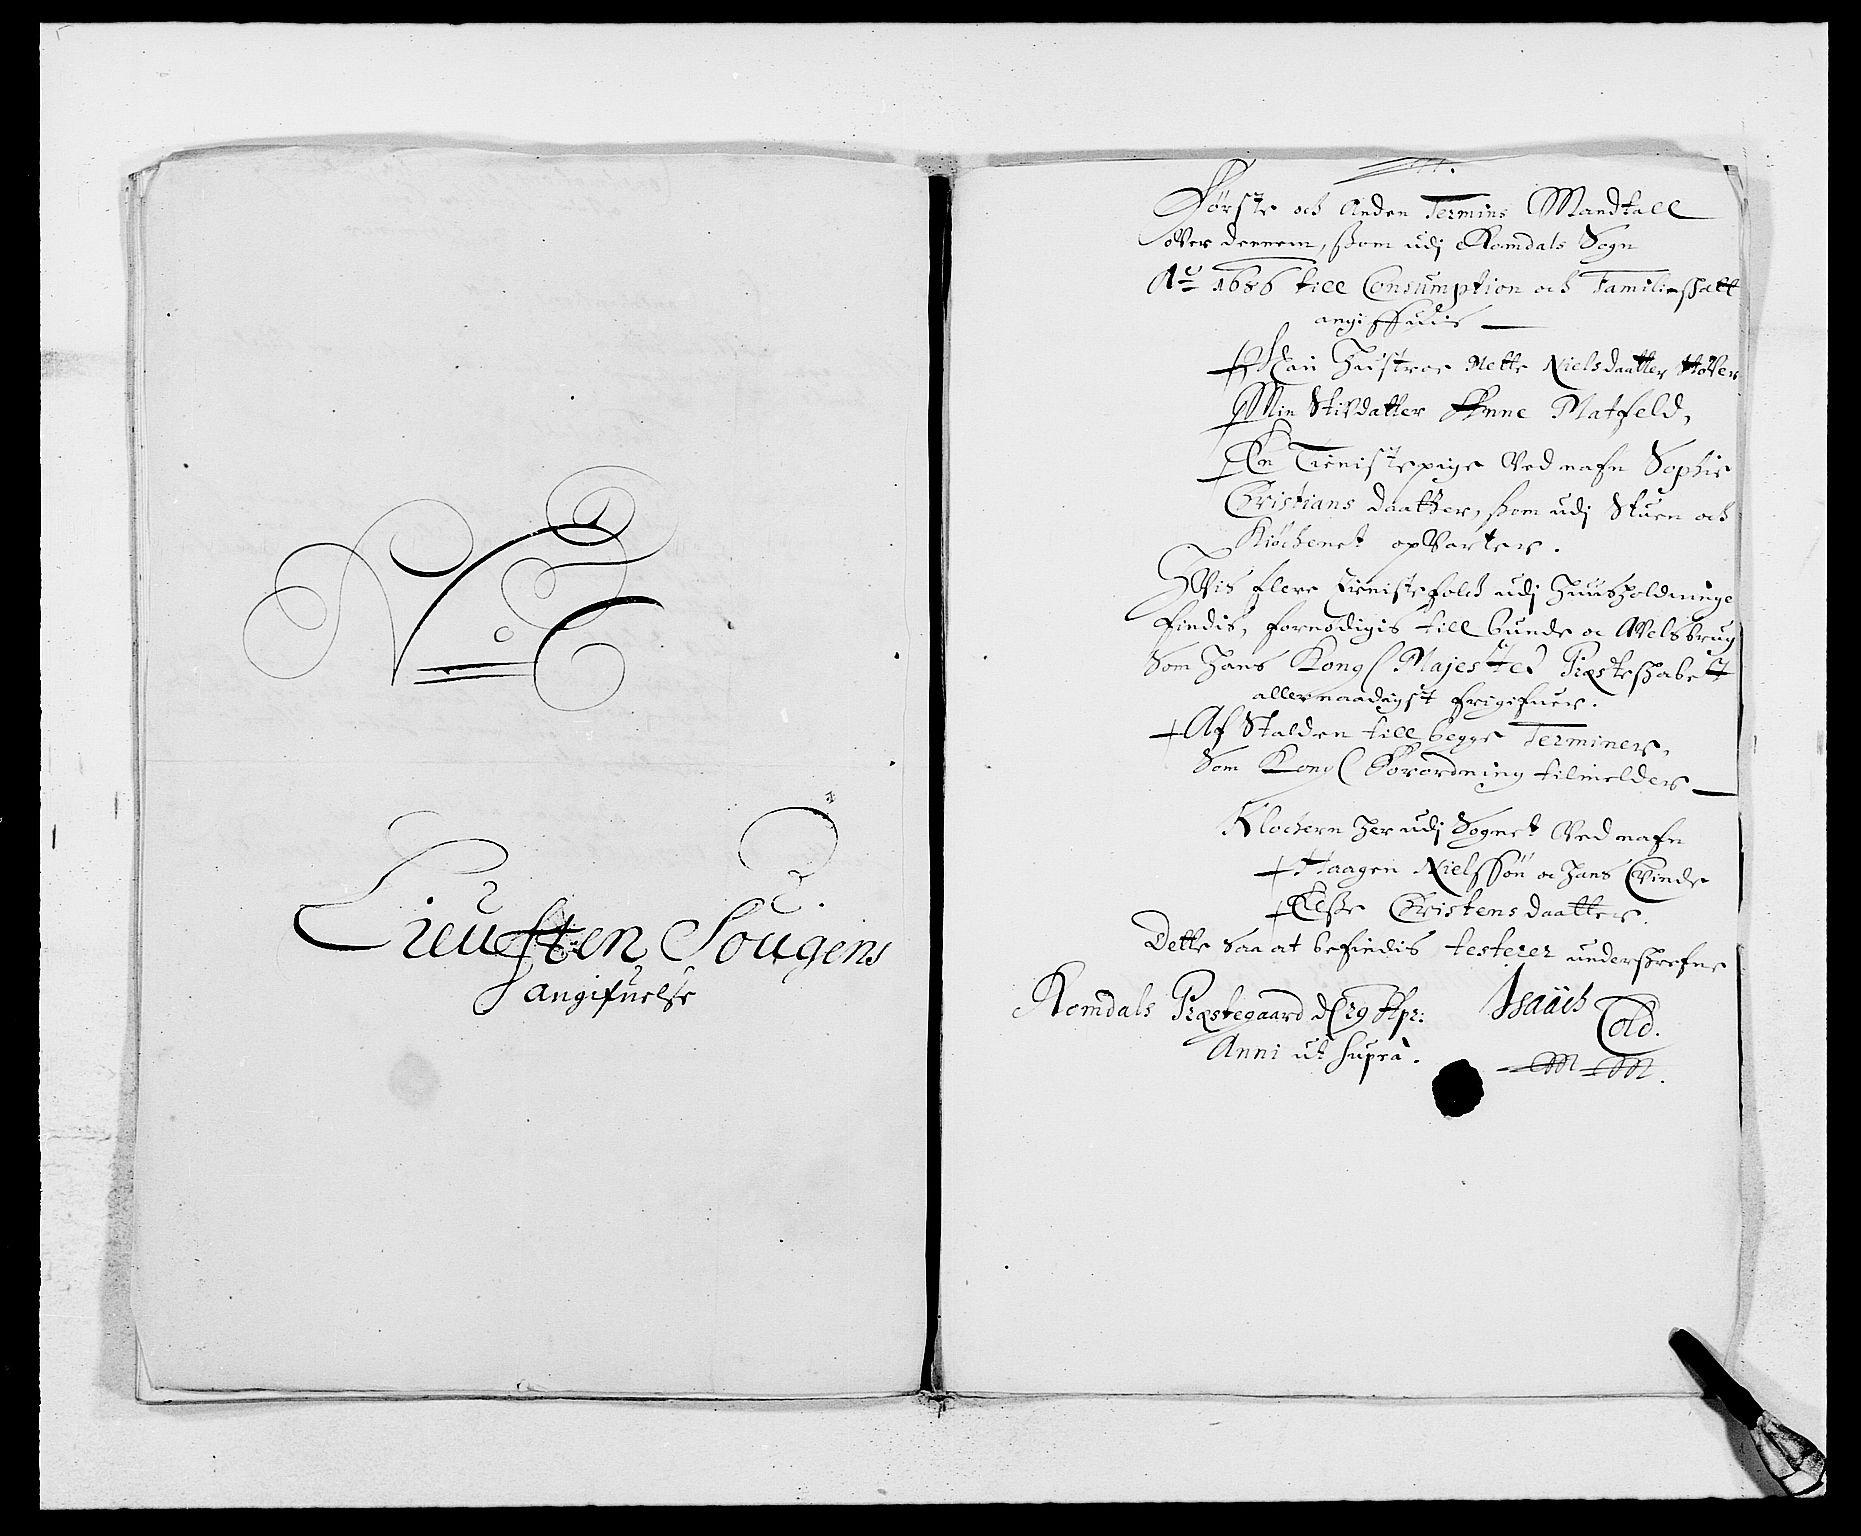 No
Lieusten Sougens
Angifuelse
Første och Anden Termins Mandtall
over dennem, som udj Romdals Sogn
Ao 1686 till Consumption och Familieskatt
angiffuis
Min Hustroe Mette Nielsdaatter Høver
Min Stifdatter Anne Matfeld,
En Tieniste pige Ved nafn Sophie
Christians daatter, som udj Stuen och
Kiøchenet opVarter.
Hvis flere tienistefolch udj Huusholdninge
findis, fornødigis till bunde oc Avelsbrug
Som Hans Kongl Majestet Præsteskabet
allernaadigst frigifuer.
Af Stalden till begge Terminer,
Som Kongl Forordning tilmelder
Klochern her udj Sognet Ved nafn
Haagen Nielssøn oc hans Qvinde
Else Christensdaatter.
Dette saa at befindis testerer underskrefne
Romdals Præstegaard d. 29 Apr:
Anni ut supra.
Isaach
Cold.
M M.